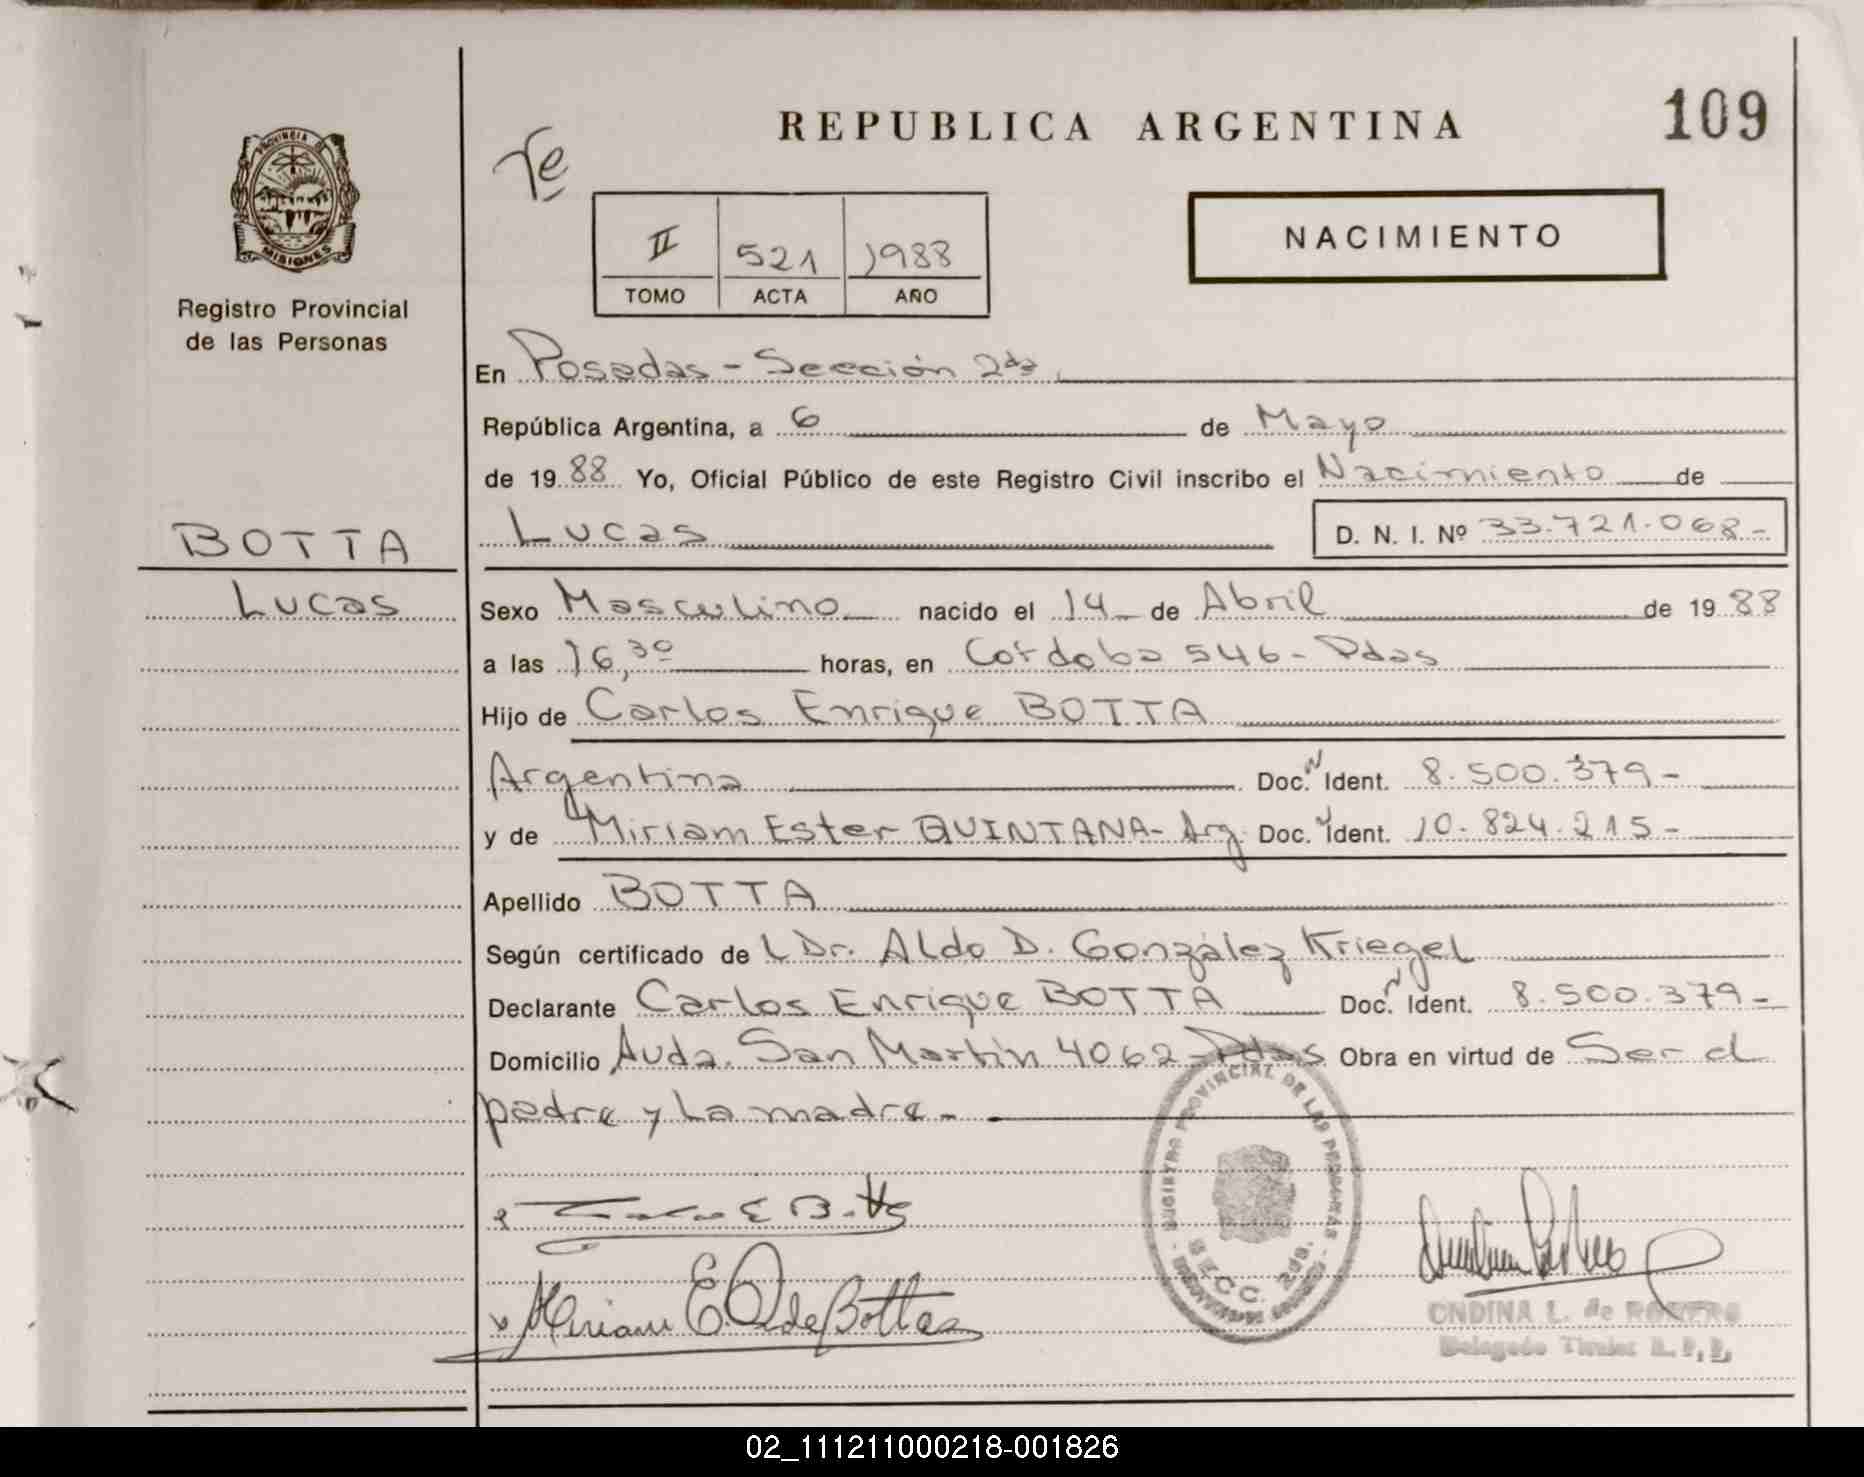 REPUBLICA ARGENTINA
109
PROVINCIA DE
MISIONES
Registro Provincial
de las Personas
II 521 1988
TOMO ACTA AÑO
NACIMIENTO
En Posadas - Sección 2da
República Argentina, a 6 de Mayo
de 1988 Yo, Oficial Público de este Registro Civil inscribo el Nacimiento de
BOTTA
Lucas
Lucas D. N. I. Nº 33.721.068-
Sexo Masculino nacido el 14 de Abril de 1988
a las 16,30 horas, en Cordoba 546 - Pdas
Hijo de Carlos Enrique BOTTA
Argentina Doc. Ident. 8.500.379-
y de Miriam Ester QUINTANA - Arg. Doc. Ident. 10.824.215-
Apellido BOTTA
Según certificado de L Dr. Aldo D. González Kriegel
Declarante Carlos Enrique BOTTA Doc. Ident. 8.500.379-
Domicilio Avda. San Martín 4062 - Pdas Obra en virtud de Ser el
padre y La madre -
REGISTRO PROVINCIAL DE LAS PERSONAS
SECC. 2da.
E Botta
Miriam E Q de Botta
ONDINA L. de ROMERO
Delegado Titular R. P. P.
02_111211000218-001826